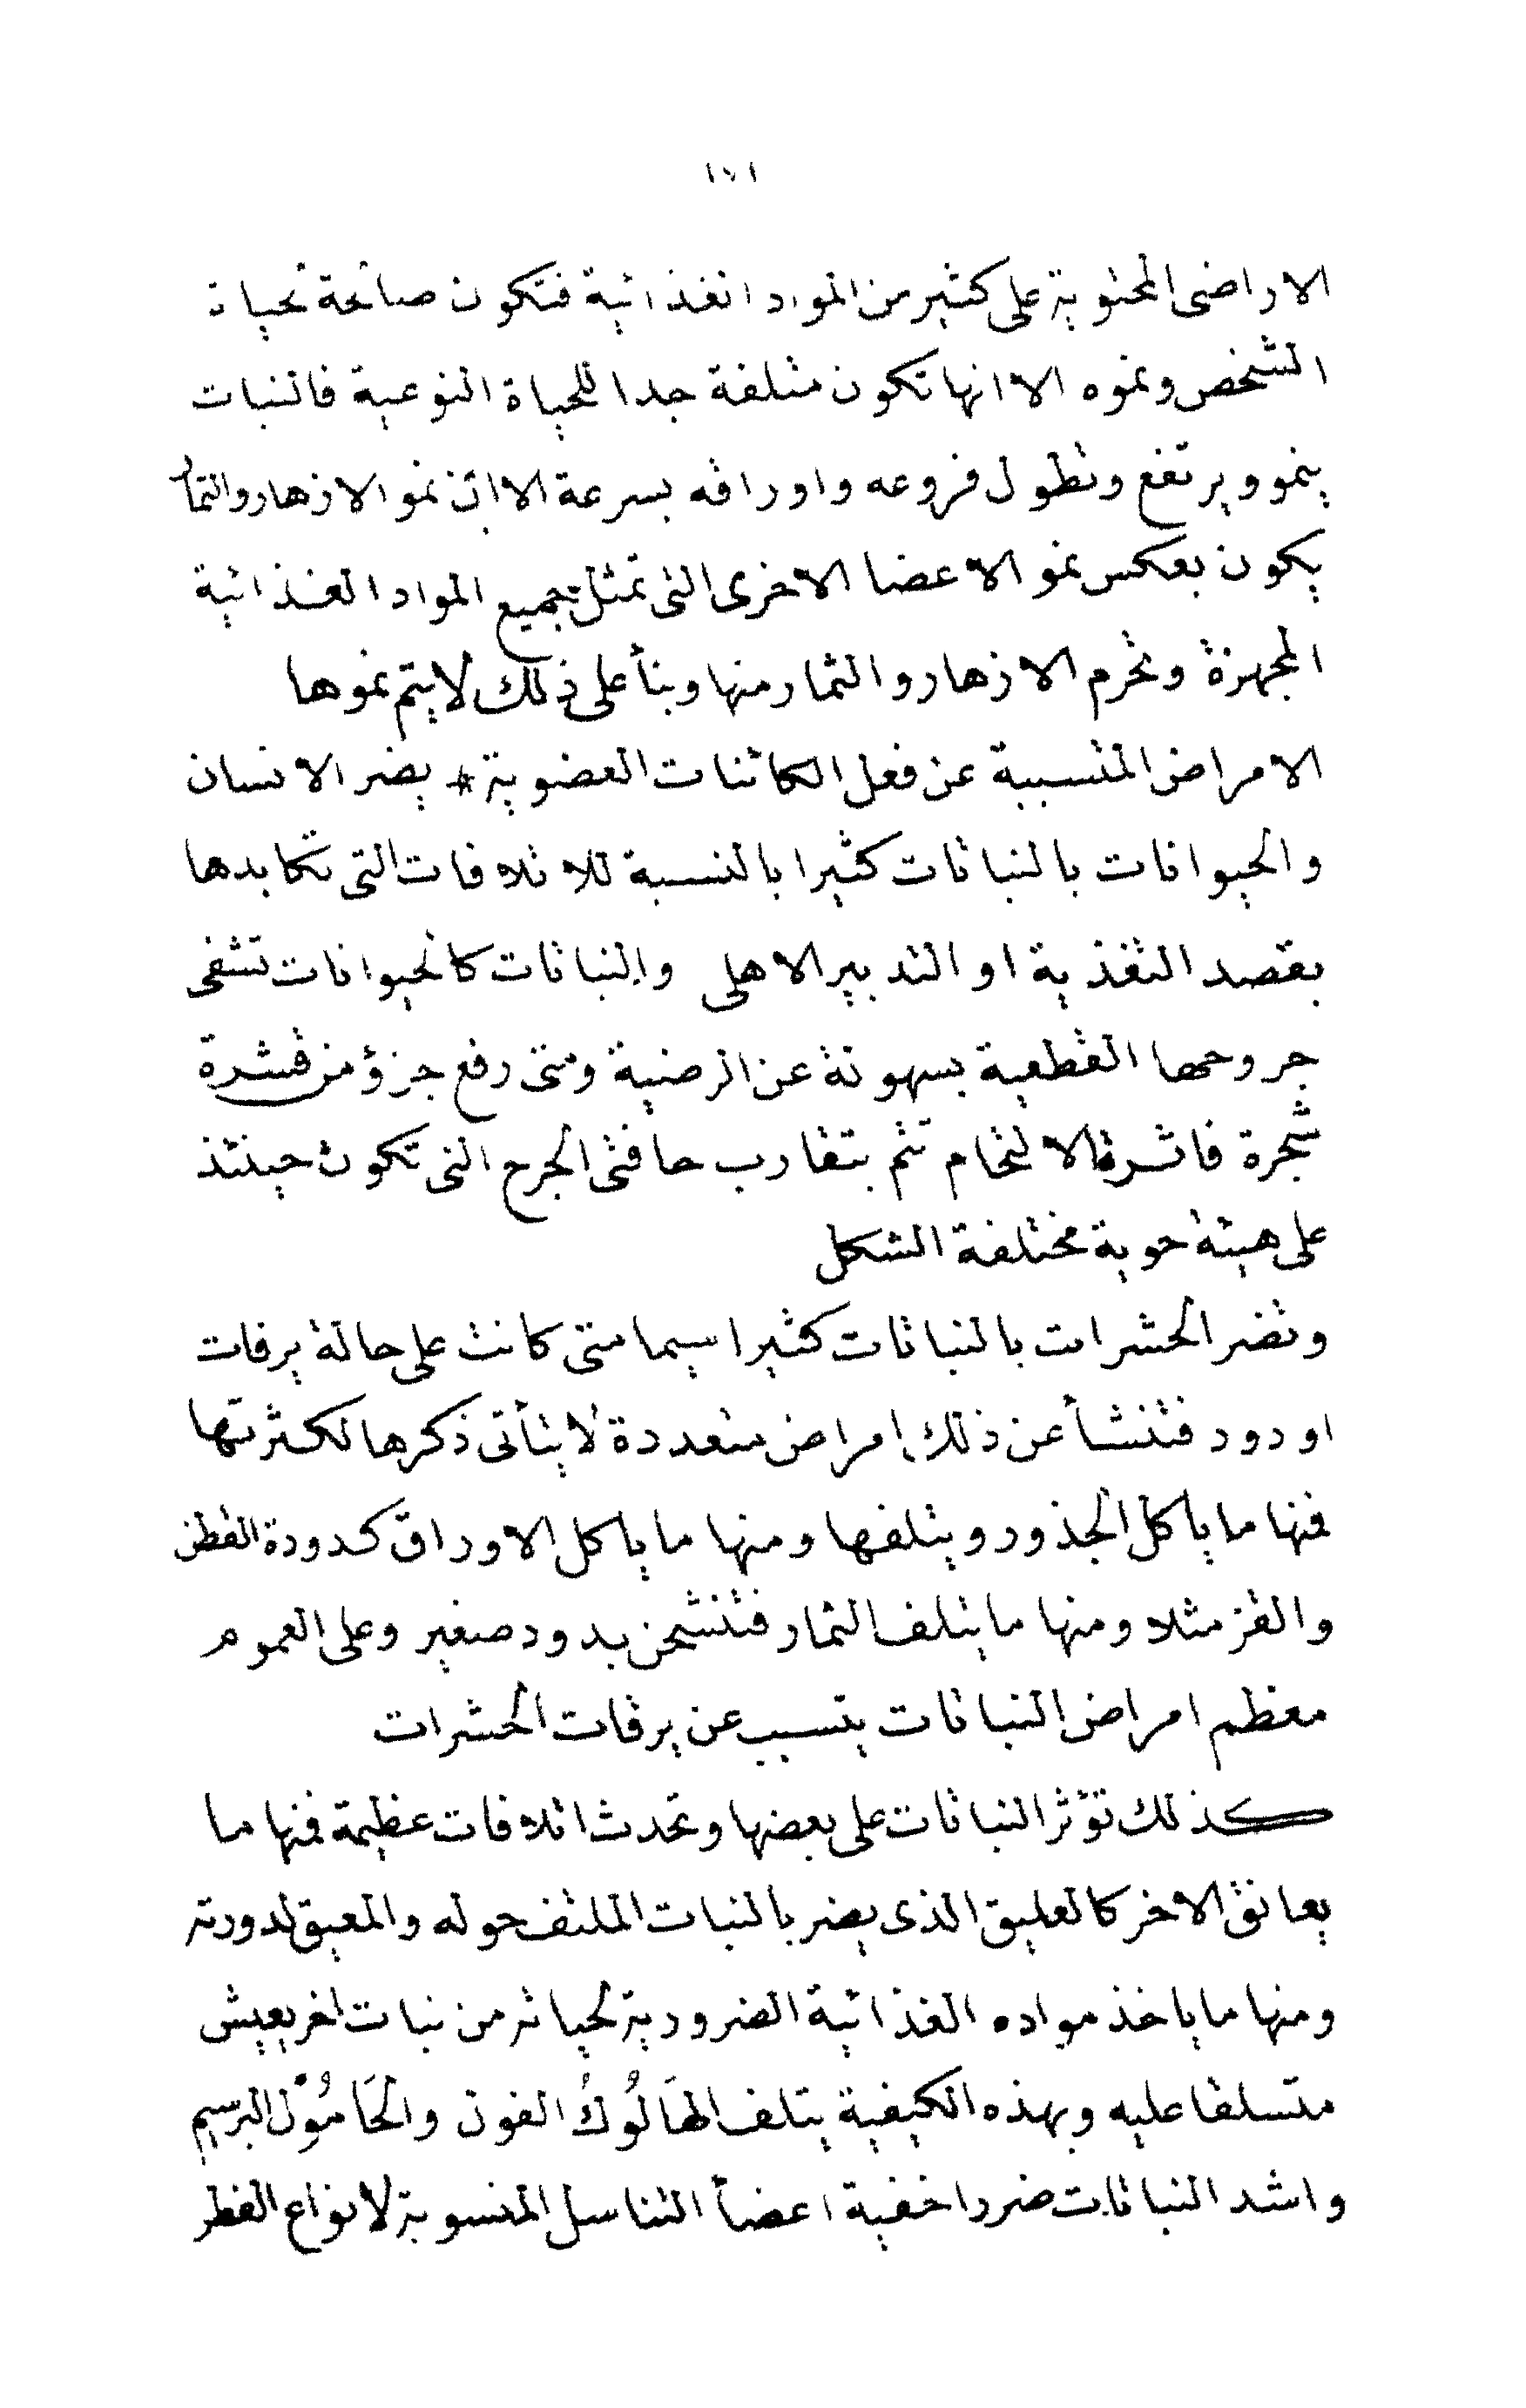 ١٧١
الاراضى المحتوية على كثير من المواد الغذائية فتكون صالحة لحياة
الشخص ونموه الا انها تكون متلفة جدا للحياة النوعية فالنبات
ينمو ويرتفع وتطول فروعه واوراقه بسرعة الا ان نمو الازهار والثمار
يكون بعكس نمو الاعضا الاخرى التى تمثل جميع المواد الغذائية
المجهزة وتحرم الازهار والثمار منها وبنأ على ذلك لا يتم نموها
الامراض المتسببة عن فعل الكائنات العضوية * يضر الانسان
والحيوانات بالنباتات كثيرا بالنسبة للاتلافات التى تكابدها
بقصد التغذية او التدبير الاهلى والنباتات كالحيوانات تشفى
جروحها القطعية بسهولة عن الرضية ومتى رفع جزؤ من قشرة
شجرة فاثرة الالتحام تتم بتقارب حافتى الجرح التى تكون حينئذ
على هيئة حوية مختلفة الشكل
وتضر الحشرات بالنباتات كثيرا سيما متى كانت على حالة يرقات
او دود فتنشأ عن ذلك امراض متعددة لا يتأتى ذكرها لكثرتها
فمنها ما ياكل الجذور ويتلفها ومنها ما ياكل الاوراق كدودة القطن
والقز مثلا ومنها ما يتلف الثمار فتنشحن بدود صغير وعلى العموم
معظم امراض النباتات يتسبب عن يرقات الحشرات
كذلك تؤثر النباتات على بعضها وتحدث اتلافات عظيمة فمنها ما
يعانق الاخر كالعليق الذى يضر بالنبات الملتف حوله والمعيق لدورته
ومنها ما ياخذ مواده الغذائية الضرورية لحياته من نبات اخر يعيش
متسلقا عليه وبهذه الكيفية يتلف الهَالُوكُ الفول والحَامُوّل البرسيم
واشد النباتات ضررا خفية اعضأ التناسل المنسوبة لانواع الفطر